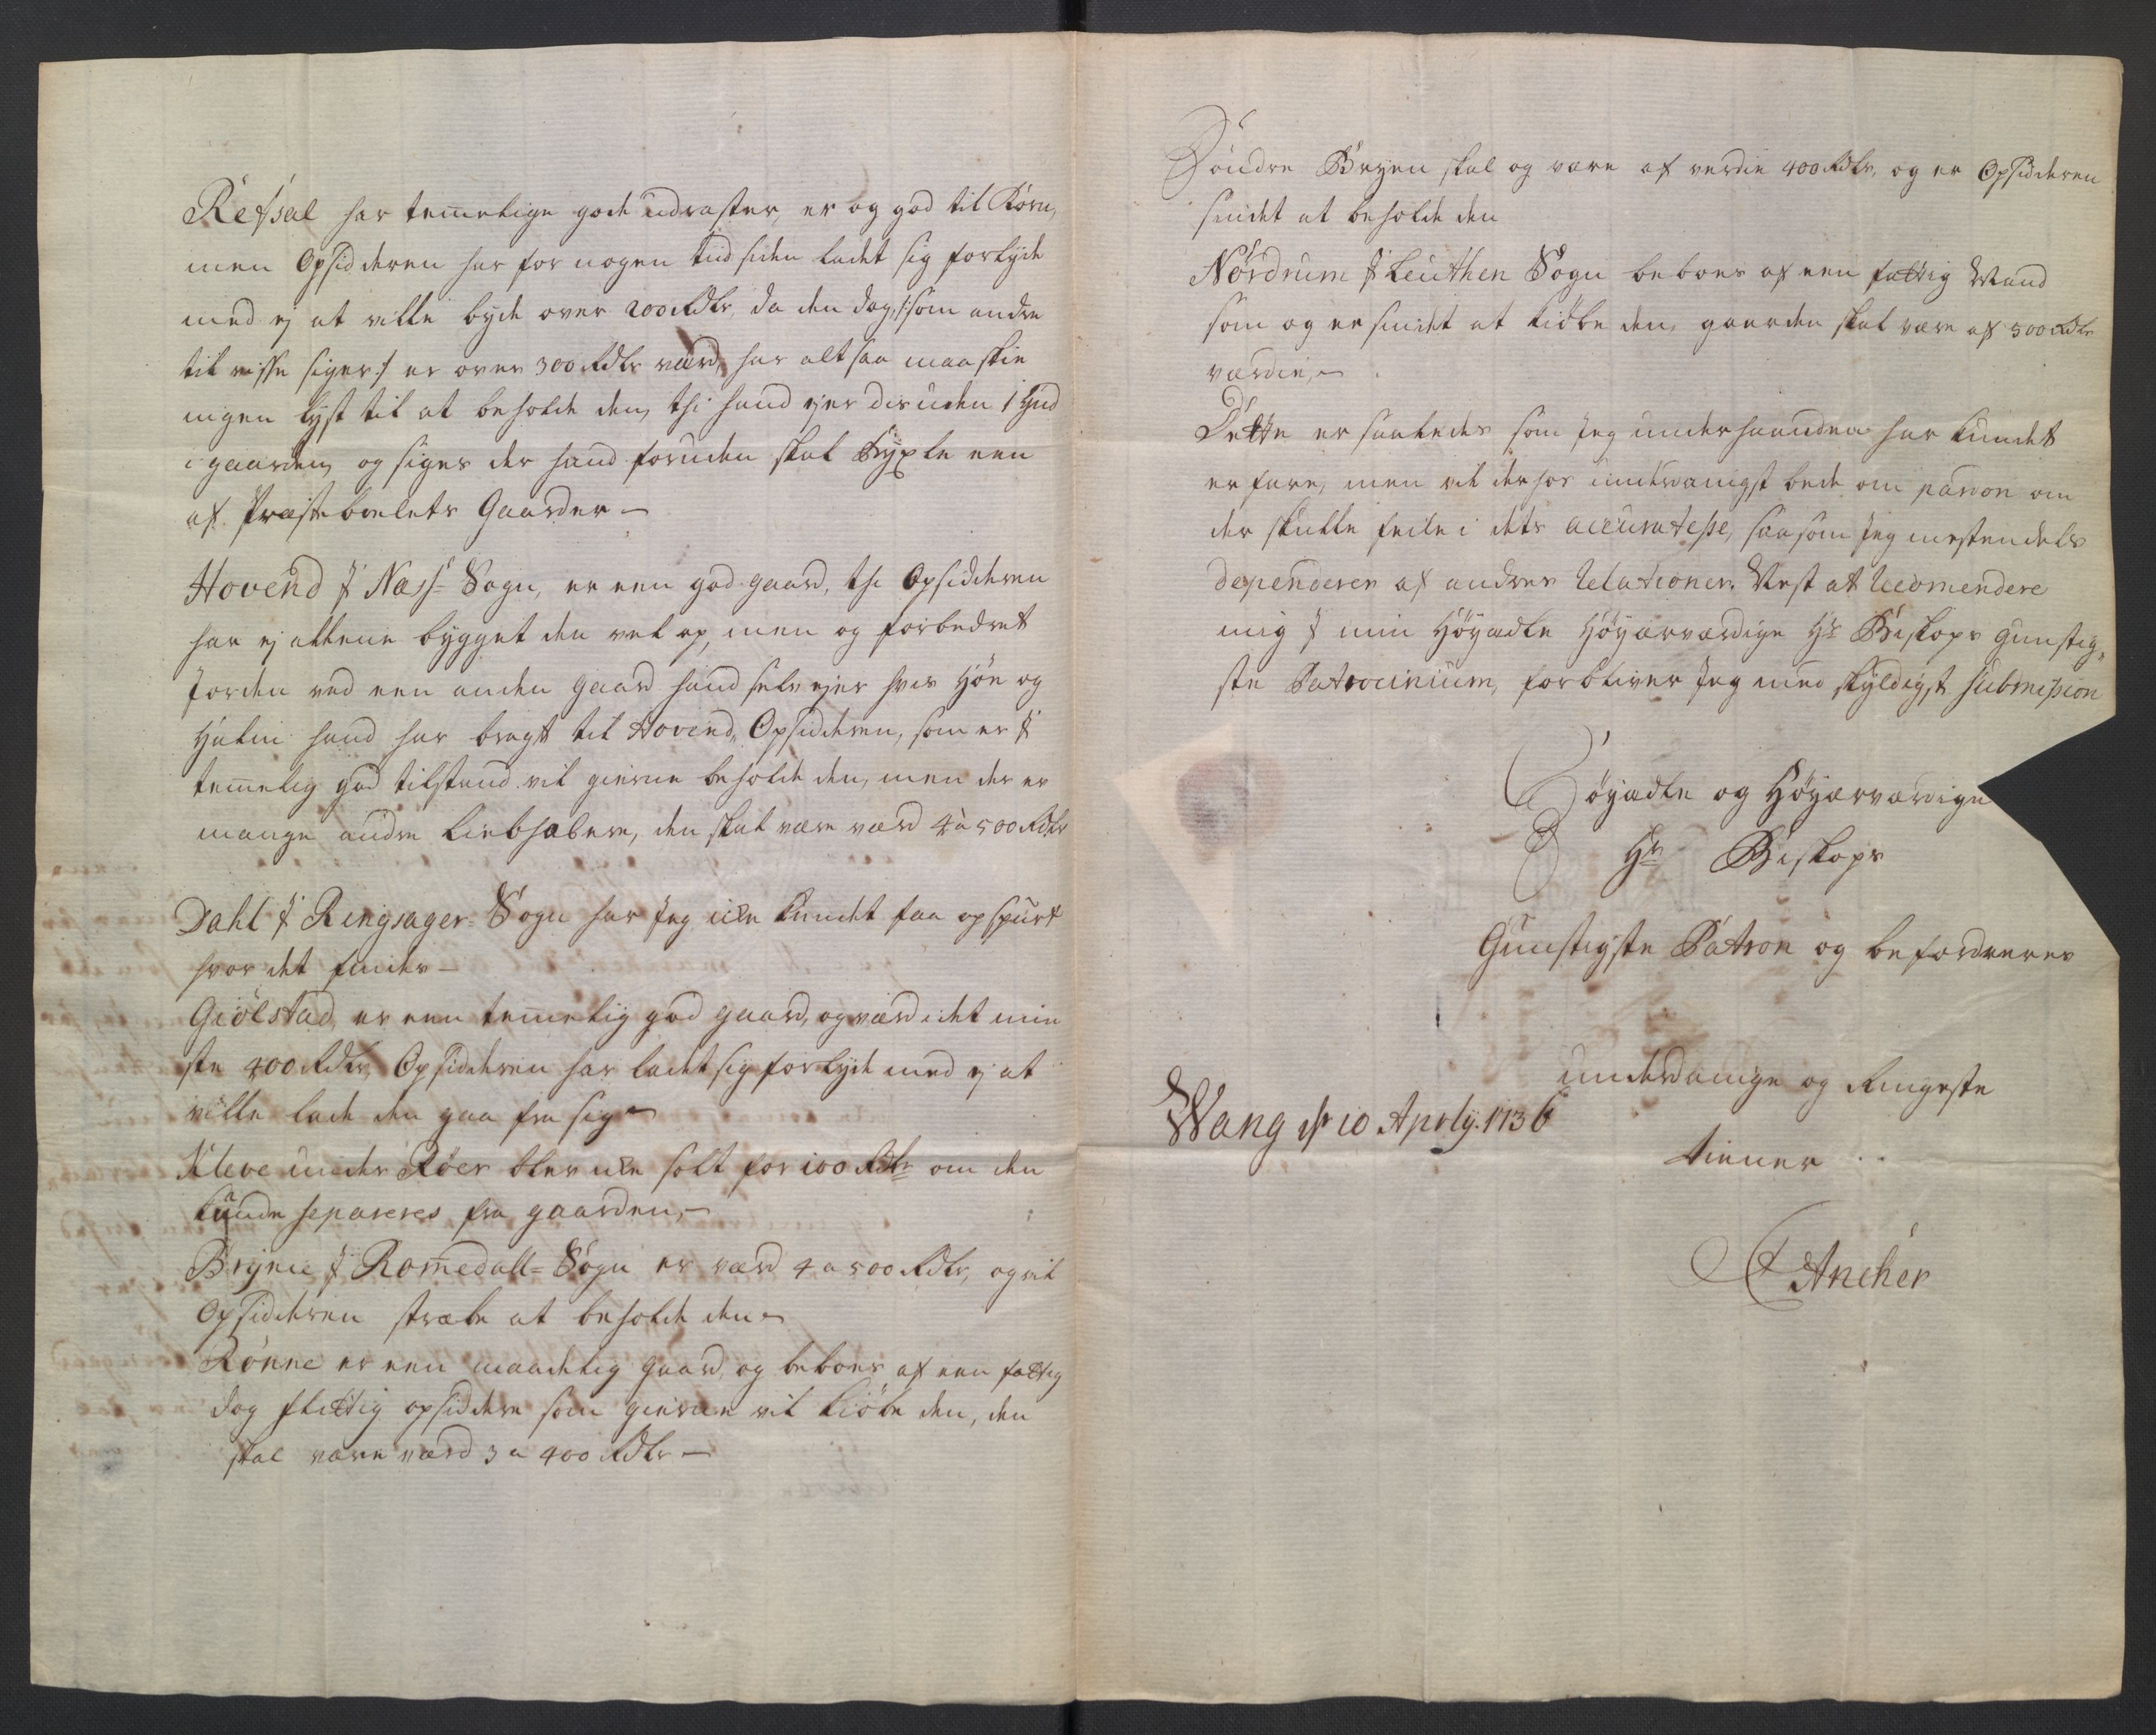 Refsal har temelige gode udraster, er og god til Korn,
men Opsidderen har for nogen tiid siden ladet sig forlyde
med ej at ville byde over 200 Rdlr, da den dog /: som andre
til visse siger :/ er over 300 Rdlr værd, har altsaa maaskie
ingen lyst til at beholde den, thi hand ejer desuden 1 Hud
i gaarden, og siges der hand foruden skal byxle een
af Præsteboelets Gaarder –
Hovend J Næss- Sogn, er een god gaard, thi Opsidderen
har ej alleene bygget den vel op, men og forbedret
Jorden ved een anden gaard hand selv ejer hvis Höe og
Halm hand har bragt til Hovend, Opsidderen, som er J
temelig god tilstand vil gierne beholde den, men der er
mange andre Liebhabere, den skal være værd 4 à 500 Rdlr
Dahl J Ringsager- Sogn har Jeg icke kundet faa opspurt
hvor det findes –
Giölstad, er een temelig god gaard, og værd i det min
ste 400 Rdlr, Opsidderen har ladet sig forlyde med ej at
ville lade den gaa fra sig –
Kleve under Röer blev icke solt for 100 Rdlr om den
kunde separeres fra gaarden, –
Bryni J Romedall- Sogn er værd 4 a 500 Rdlr, og vil
Opsidderen stræbe at beholde den –
Rönne er een maadelig gaard, og beboes af een fattig
dog flittig opsiddere som gierne vil kiöbe den, den
skal være værd 3 a 400 Rdlr –
Söndre Bryen skal og være af verdie 400 Rdlr, og er Opsidderen
sindet at beholde den
Nordrum J Leuthen Sogn beboes af een fattig Mand
som og er sindet at kiöbe den, gaarden skal være af 300 Rdlr
værdie, –
Dette er saaledes som Jeg underhaanden har kundet
erfare, men vil derhos underdanigst bede om pardon om
der skulle feile i dets accuratesse, saasom Jeg mestendels
dependerer af andres Relationer. Næst at Recomendere
mig J min Höyædle Höyærværdige Hr Biskops gunstig-
ste Patrocinium, forbliver Jeg med skyldigst submission
Höyædle og Höyærværdige
Hr Biskops
Gunstigste Patron og befordreres
underdanige og Ringeste
tiener
Wang d 10 Aprily. 1736
Ancher